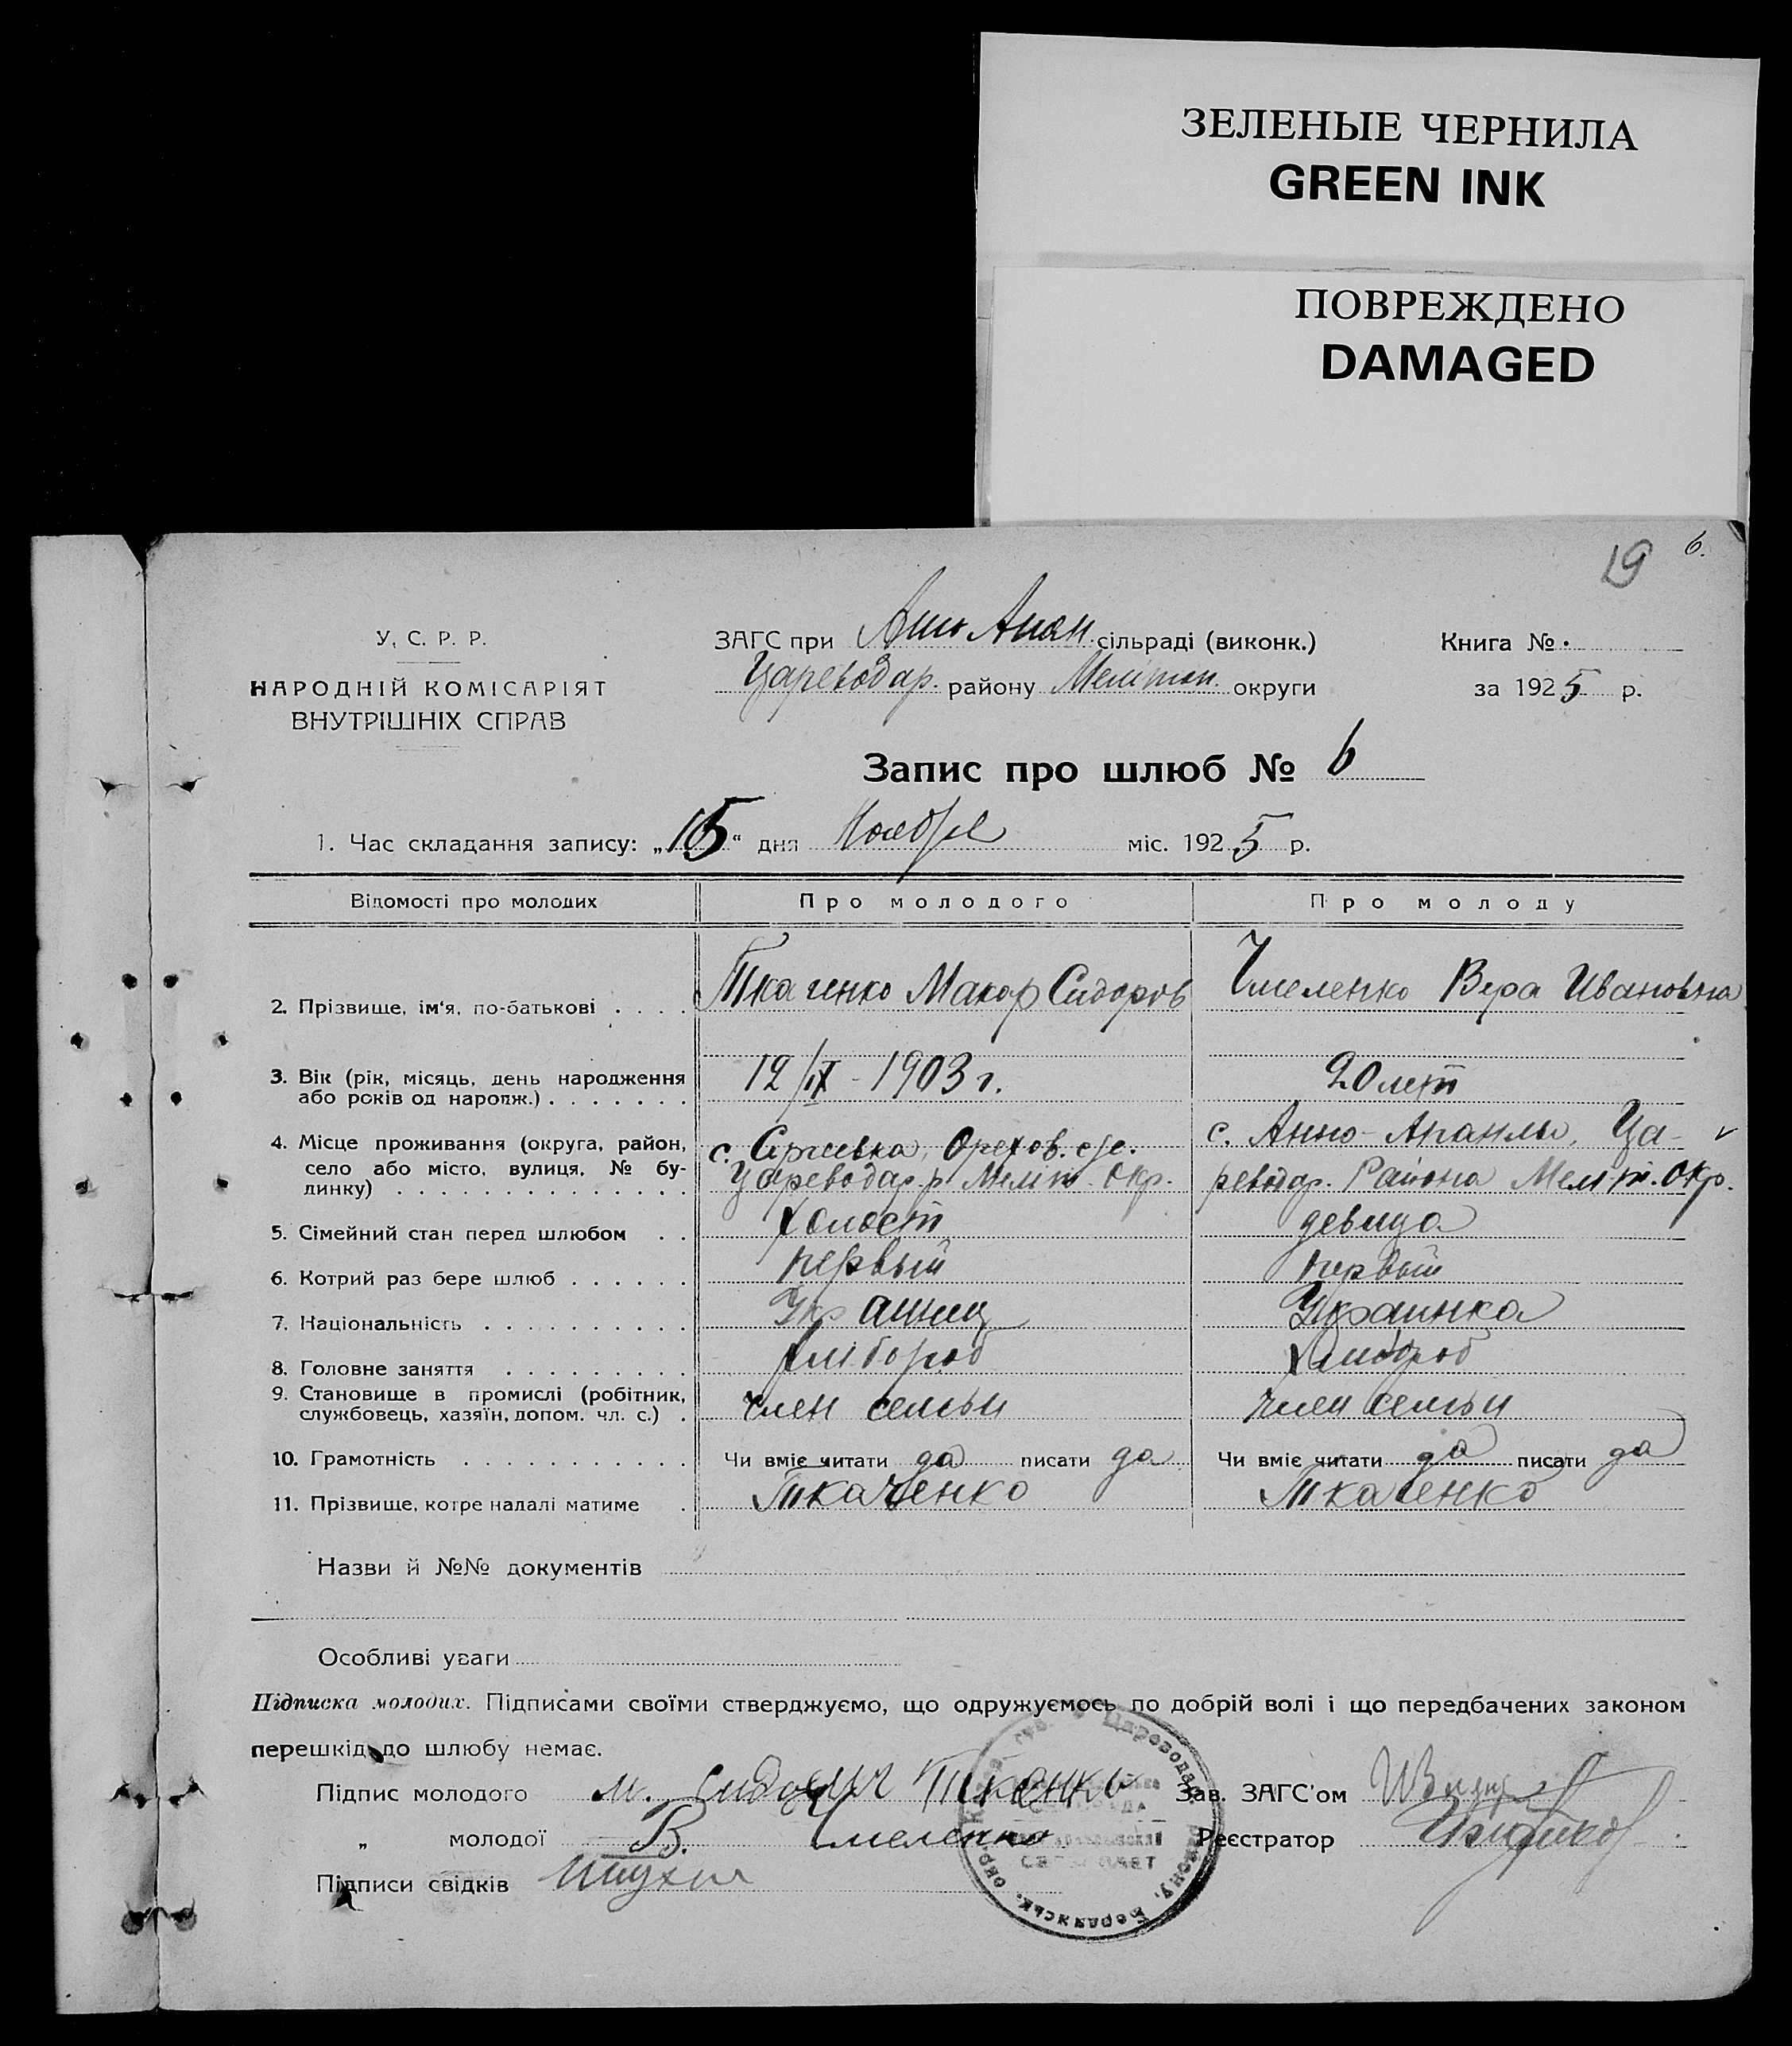 ЗЕЛЕНЫЕ ЧЕРНИЛА
GREEN INK
ПОВРЕЖДЕНО
DAMAGED
19 6.
У. С. Р. Р.
НАРОДНІЙ КОМІСАРІЯТ
ВНУТРІШНІХ СПРАВ
ЗАГС при Анно Апан. сільраді (виконк.)
Цареводар. району Мелітоп. округи
Книга №
за 1925 р.
Запис про шлюб № 6
1. Час складання запису: „15“ дня Ноября міс. 1925 р.
Відомості про молодих Про молодого Про молоду
2. Прізвище, ім'я, по-батькові . . . . Ткаченко Макар Сидоров Чмеленко Вера Ивановна
3. Вік (рік, місяць, день народження
або років од народж.) . . . . . . . 12/IX - 1903 г. 20 лет
4. Місце проживання (округа, район,
село або місто, вулиця, № бу-
динку) . . . . . . . . . . . . . .
с. Орехов.
Цареводар. р. Меліт. Окр.
с. Анно-Апанлы, Ца-
реводар. Района Меліт. Окр.
5. Сімейний стан перед шлюбом . . холост девица
6. Котрий раз бере шлюб . . . . . . первый первый
7. Національність . . . . . . . . . . Украинец Украинка
8. Головне заняття . . . . . . . . . хлібороб хлибороб
9. Становище в промислі (робітник,
службовець, хазяїн, допом. чл. с.) . член семьи член семьи
10. Грамотність . . . . . . . . . . . Чи вміє читати да писати да Чи вміє читати да писати да
11. Прізвище, котре надалі матиме . Ткаченко Ткаченко
Назви й №№ документів
Особливі уваги
Підписка молодих. Підписами своїми стверджуємо, що одружуємось по добрій волі і що передбачених законом
перешкід до шлюбу немає.
Підпис молодого М. Сидорович Ткаченко Зав. ЗАГС'ом
„ молодої В. Чмеленко Реєстратор
Підписи свідків